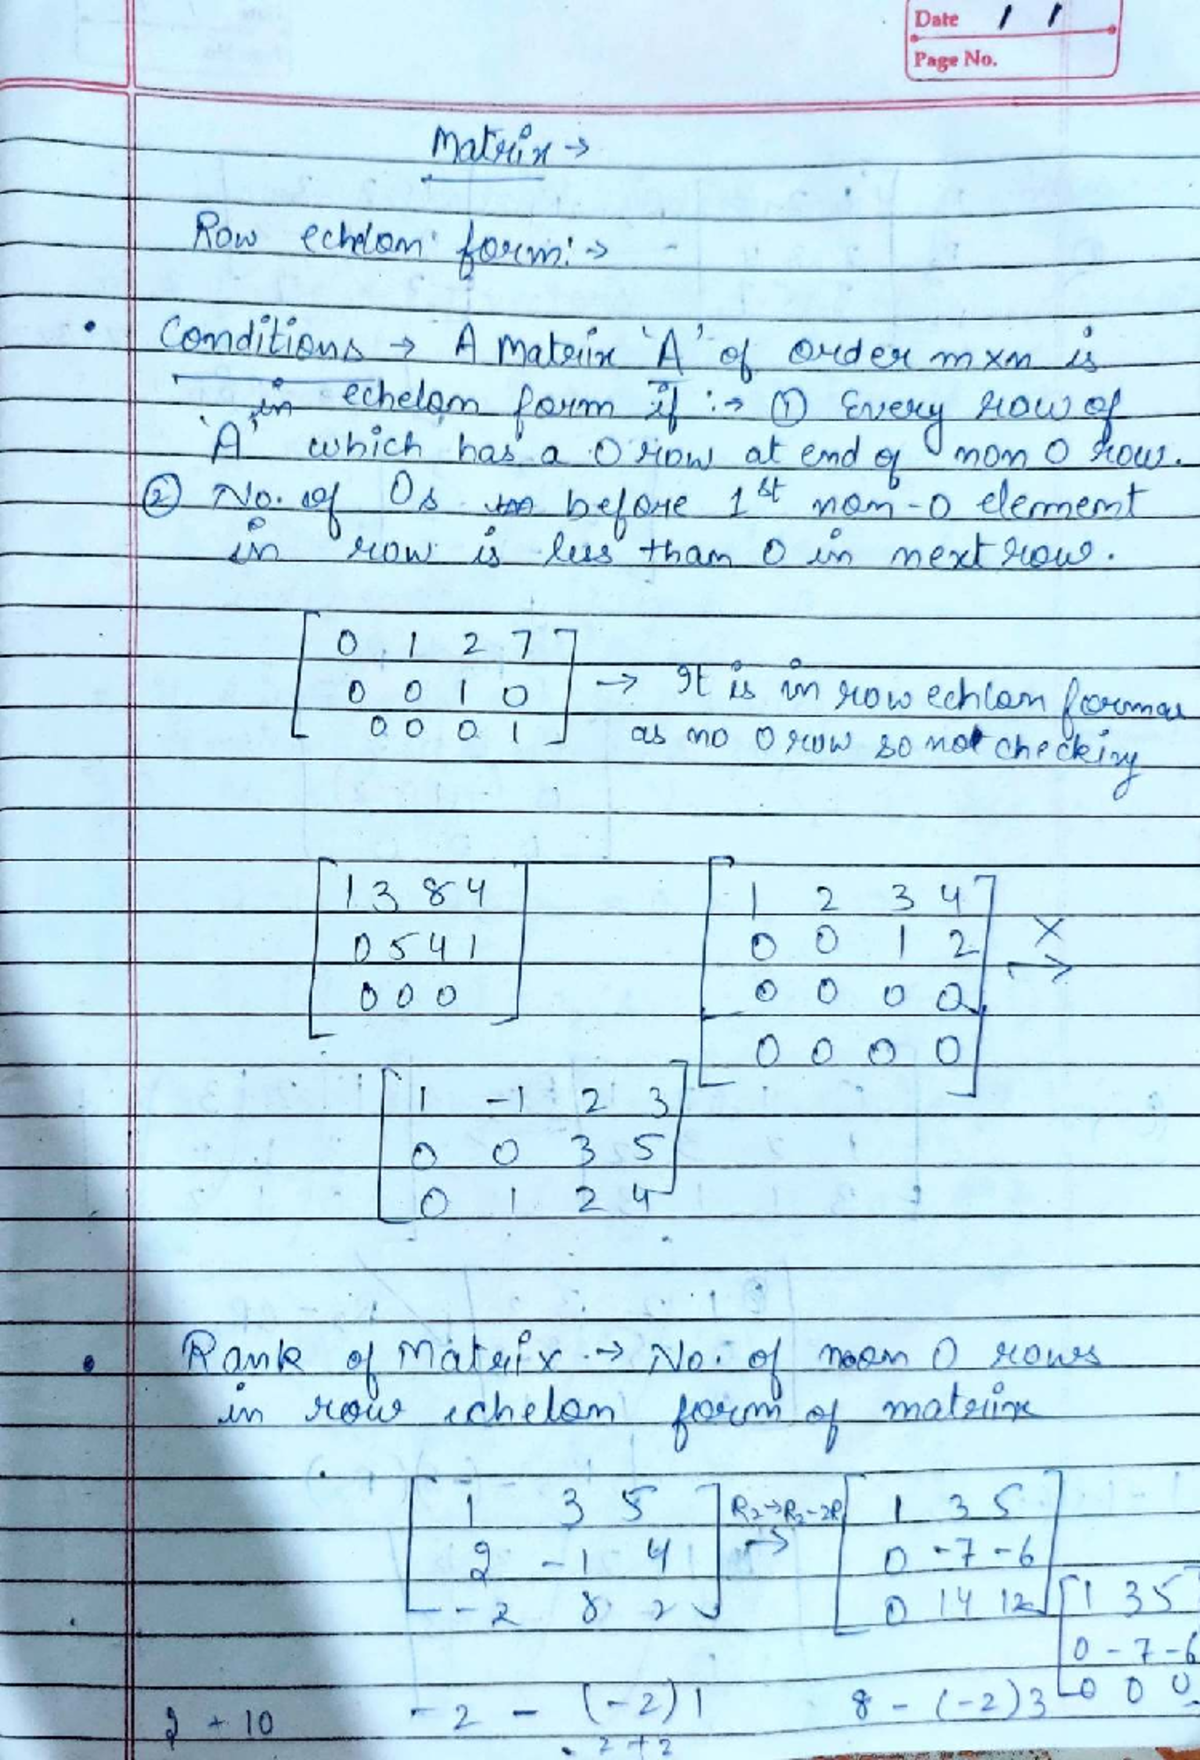 Date / /
Page No.
Matrix →
Row echelon form :→
• Conditions → A matrix 'A' of order m×n is
in echelon form if :→ ① Every row of
'A' which has a 0 row at end of non 0 row.
② No. of 0s before 1st non-0 element
in row is less than 0 in next row.
0 1 2 7
0 0 1 0 → It is in row echlon form as
0 0 0 1 as no 0 row so not checking
1 3 8 4
0 5 4 1
0 0 0
1 2 3 4
0 0 1 2 X →
0 0 0 0
0 0 0 0
1 -1 2 3
0 0 3 5
0 1 2 4
• Rank of Matrix → No. of non 0 rows
in row echelon form of matrix
1 3 5 R2→R2-2R1 1 3 5
2 -1 4 → 0 -7 -6
-2 8 2 0 14 12
1 3 5
0 -7 -6
0 0 0
2 + 10 -2 - (-2)1 8 - (-2)3
-2+2